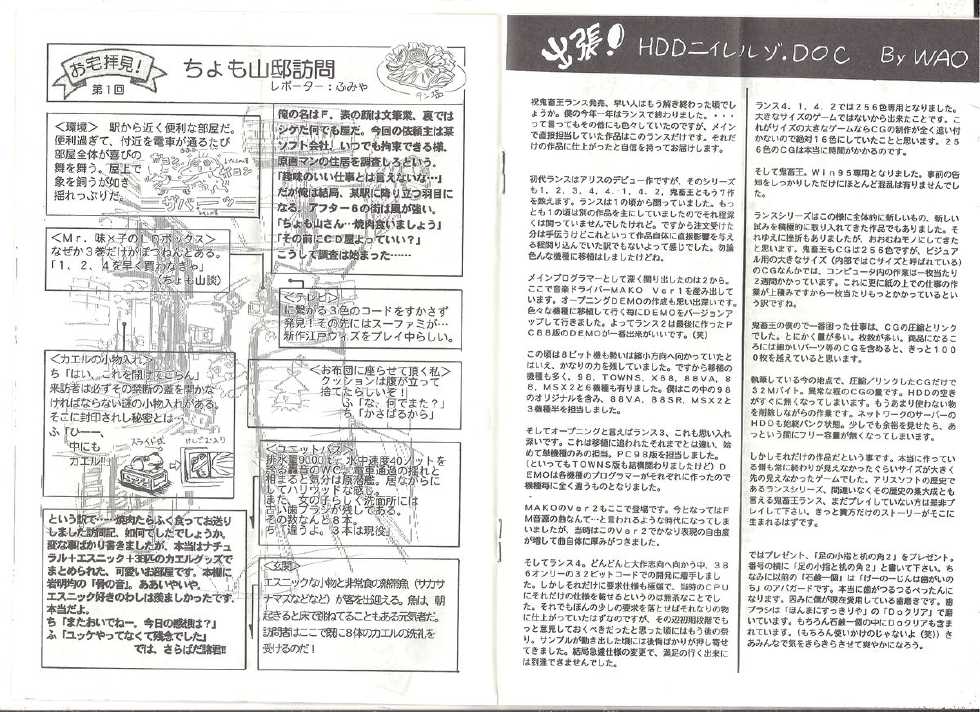 お宅拝見!
第1回
ちょも山邸訪問
レポーター:ふみや
<環境> 駅から近く便利な部屋だ。
便利過ぎて、付近を電車が通るたび
部屋全体が喜びの
舞を舞う。屋上で
象を飼うが如き
揺れっぷりだ。
俺の名はF。表の顔は文筆業、裏では
シケた何でも屋だ。今回の依頼主は某
ソフト会社。いつでも拘束できる様、
原画マンの住居を調査しろという。
「趣味のいい仕事とは言えないな…」
だが俺は結局、某駅に降り立つ羽目に
なる。アフター6の街は風が強い。
「ちょも山さん…焼肉食いましょう」
「その前にCD屋よっていい?」
こうして調査は始まった……
<Mr.味×子のLDボックス>
なぜか3巻だけがぽつねんとある。
「1、2、4を早く買わなきゃ」
(ちょも山談)
<テレビ>
に繋がる3色のコードをすかさず
発見!その先にはスーファミが…
新作江戸ウィズをプレイ中らしい。
<カエルの小物入れ>
ち「はい、これを開けてごらん」
来訪者は必ずその禁断の蓋を開かな
ければならない謎の小物入れがある。
そこに封印されし秘密とは…
ふ「ひーー、
中にも
カエル!」
<お布団に座らせて頂く私>
クッションは腹が立って
捨てたらしいぞ!
ふ「な、何でまた?」
ち「かさばるから」
<ユニットバス>
排水量9000t、水中速度40ノットを
誇る轟音のWC。電車通過の揺れと
相まると気分は原潜艦。居ながらに
してハリウッドな感じ。
また、女の子らしく洗面所には
古い歯ブラシが残してある。
その数なんと8本。
ち「違うよ。3本は現役」
という訳で……焼肉たらふく食ってお送り
しました訪問記、如何でしたでしょうか。
変な事ばかり書きましたが、本当はナチュ
ラル+エスニック+38匹のカエルグッズで
まとめられた、可愛いお部屋です。本棚に
岩明均の「骨の音」。ああいやいや。
エスニック好きのわしは羨ましかったです。
本当だよ。
ち「またおいでねー。今日の感想は?」
ふ「ユッケやってなくて残念でした」
では、さらばだ諸君!!
<玄関>
エスニックな小物と非常食の熱帯魚(サカサ
ナマズなどなど)が客を出迎える。魚は、朝
起きると床で跳ねてることもある元気者だ。
訪問者はここで既に8体のカエルの洗礼を
受けるのだ!
出張! HDDニイレルゾ.DOC By WAO
祝鬼畜王ランス発売、早い人はもう解き終わった頃でし
ょうか。僕の今年一年はランスで終わりました。・・・
って言ってもその他にも色々していたのですが、メイン
で直接担当していた作品はこのランスだけです。それだ
けの作品に仕上がったと自信を持ってお届けします。
初代ランスはアリスのデビュー作ですが、そのシリーズ
も1、2、3、4、4.1、4.2、鬼畜王ともう7作
を数えます。ランスは1の頃から関っていました。もっ
とも1の頃は別の作品を主にしていましたのでそれ程深
くは関っていませんでしたけれど。ですから注文受けた
分は手伝うけどこれといって作品自体に直接影響を与え
る程関り込んでいた訳でもないよって感じでした。勿論
色んな機種に移植はしましたけどね。
メインプログラマーとして深く関り出したのは2から。
ここで音楽ドライバーMAKO Ver1を産み出して
います。オープニングDEMOの作成も思い出深いです。
色々な機種に移植して行く毎にDEMOをバージョンア
ップして行きました。よってランス2は最後に作ったP
C88版のDEMOが一番出来がいいです。(笑)
この頃は8ビット機も勢いは縮小方向へ向かっていたと
はいえ、かなりの力を残していました。ですから移植の
機種も多く、98、TOWNS、X68、88VA、8
8、MSX2と6機種も有りました。僕はこの中の98
のオリジナルを含み、88VA、88SR、MSX2と
3機種半を担当しました。
そしてオープニングと言えばランス3、これも思い入れ
深いです。これは移植に追われたそれまでとは違い、始
めて単機種のみの担当。PC98版を担当しました。
(といってもTOWNS版も結構関わりましたけど)D
EMOは各機種のプログラマーがそれぞれに作ったので
機種毎に全く違うものとなりました。
MAKOのVer2もここで登場です。今となってはF
M音源の曲なんて…と言われるような時代になってしま
いましたが、当時はこのVer2でかなり表現の自由度
が増して曲自体に厚みがつきました。
そしてランス4。どんどんと大作志向へ向かう中、38
6オンリーの32ビットコードでの開発に着手しまし
た。しかしそれだけに要求仕様も極端で、当時のCPU
にそれだけの仕様を載せるというのは無茶なことでし
た。それでもほんの少しの要求を落とせばそれなりの物
に仕上がっていたはずなのですが、その辺初期段階でも
っと意見しておくべきだったと思った頃にはもう後の祭
り。サンプルが動き出した頃には後悔ばかりが押し寄せ
てきました。結局急遽仕様の変更で、満足の行く出来に
は到達できませんでした。
ランス4.1、4.2では256色専用となりました。
大きなサイズのゲームではないから出来たことです。こ
れがサイズの大きなゲームならCGの制作が全く追い付
かないので絶対16色にしていたことと思います。25
6色のCGは本当に時間がかかるのです。
そして鬼畜王。Win95専用となりました。事前の告
知をしっかりしただけにほとんど混乱は有りませんでし
た。
ランスシリーズはこの様に主体的に新しいもの、新しい
試みを積極的に取り入れてきた作品でもありました。そ
れゆえに挫折もありましたが、おおむねモノにしてきた
と思います。鬼畜王もCGは256色ですが、ビジュア
ル用の大きなサイズ(内部ではCサイズと呼ばれている)
のCGなんかでは、コンピュータ内の作業は一枚当たり
2週間かかっています。これに更に紙の上での仕事の作
業が上積みですから一枚当たりもっとかかっているとい
う訳ですね。
鬼畜王の僕ので一番困った仕事は、CGの圧縮とリンク
でした。とにかく量が多い。枚数が多い。商品になるこ
ろには細かいパーツ等のCGを含めると、きっと100
0枚を越えていると思います。
執筆している今の地点で、圧縮/リンクしたCGだけで
32Mバイト。異常な程のCGの量です。HDDの空き
がすぐに無くなってしまいます。もうあまり使わない物
を削除しながらの作業です。ネットワークのサーバーの
HDDも始終パンク状態。少しでも余裕を見せたら、あ
っという間にフリー容量が無くなってしまいます。
しかしそれだけの作品だという事です。本当に作ってい
る側も常に終わりが見えなかったぐらいサイズが大きく
先の見えなかったゲームでした。アリスソフトの歴史で
あるランスシリーズ、間違いなくその歴史の集大成とも
言える鬼畜王ランス、まだプレイしていない方は是非プ
レイして下さい。きっと貴方だけのストーリーがそこに
生まれるはずです。
ではプレゼント、「足の小指と机の角2」をプレゼント。
番号の横に「足の小指と机の角2」と書いて下さい。ち
なみに以前の「石鹸一個」は「げーのーじんは歯がいの
ち」のアパガードです。本当に歯がつるつるぺったんに
なります。因みに僕が現在愛用している歯磨きです。歯
ブラシは「ほんまにすっきりや」の「Doクリア」で磨
いています。もちろん石鹸一個の中にDoクリアも含ま
れています。(もちろん使いかけのじゃないよ(笑))き
あみんなで気をきらきらさせて爽やかになろう。